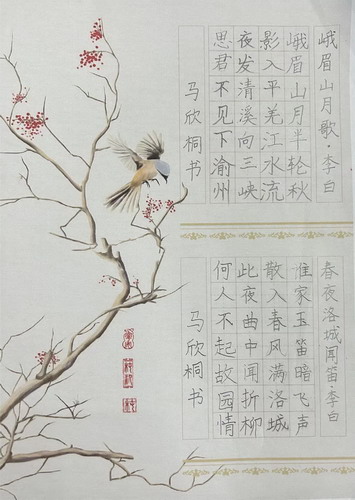 峨眉山月歌·李白
峨眉山月半轮秋
影入平羌江水流
夜发清溪向三峡
思君不见下渝州
马欣桐书
春夜洛城闻笛·李白
谁家玉笛暗飞声
散入春风满洛城
此夜曲中闻折柳
何人不起故园情
马欣桐书